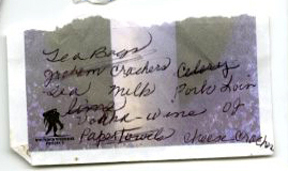 Tea Bags
Graham Crackers Celery
Tea Milk Pork Loin
Limes
Vodka - wine OJ
Paper towels cheese cracker